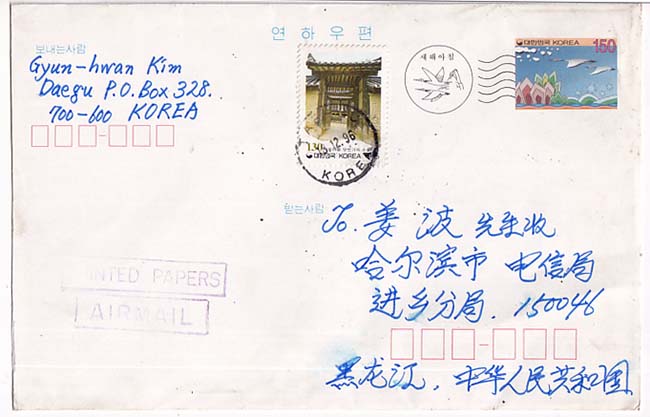 연하우편
보내는사람
Gyun-hwan Kim
Daegu P.O.Box 328.
700-600 KOREA
새해아침
대한민국 KOREA 150
130
대한민국 KOREA
12.96
KOREA
받는사람
To. 姜波 先生收
哈尔滨市 电信局
进乡分局. 150046
黑龙江, 中华人民共和国
PRINTED PAPERS
AIRMAIL